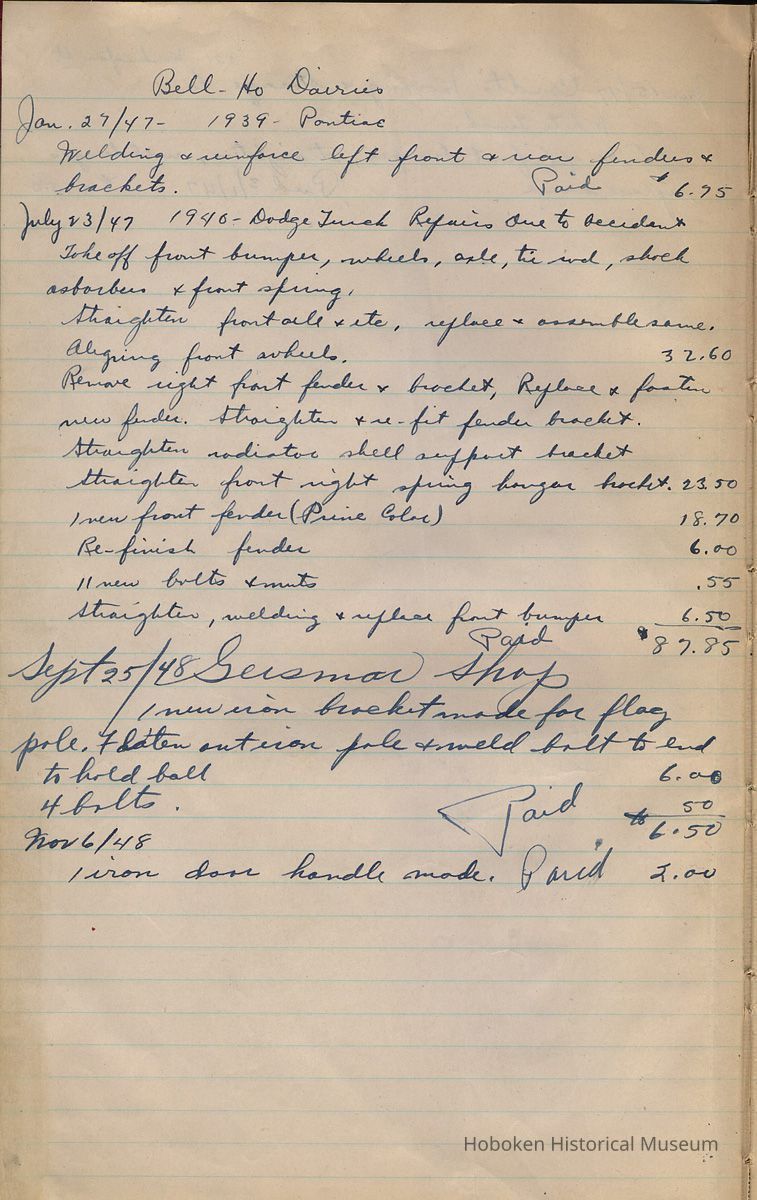 Bell-Ho Dairies
Jan. 27/47- 1939- Pontiac
Welding & reinforce left front & rear fenders &
brackets. Paid $6.75
July 23/47 1940-Dodge Truck Repairs Due to Accident
Take off front bumper, wheels, axle, tie rod, shock
asborbers & front spring.
Straighten front axle & etc, replace & assemble same.
Aligning front wheels. 32.60
Remove right front fender & bracket, Replace & fasten
new fender. Straighten & re-fit fender bracket.
Straighten radiator shell support bracket
Straighten front right spring hangar bracket. 23.50
1 new front fender (Prime Color) 18.70
Re-finish fender 6.00
11 new bolts & nuts .55
Straighten, welding & replace front bumper 6.50
Paid $87.85
Sept 25/48 Geismar Shop
1 new iron bracket made for flag
pole. Flaten out iron pole & weld bolt to end
to hold ball 6.00
4 bolts. 50
Paid $6.50
Nov 6/48
1 iron door handle made. Paid 2.00
Hoboken Historical Museum